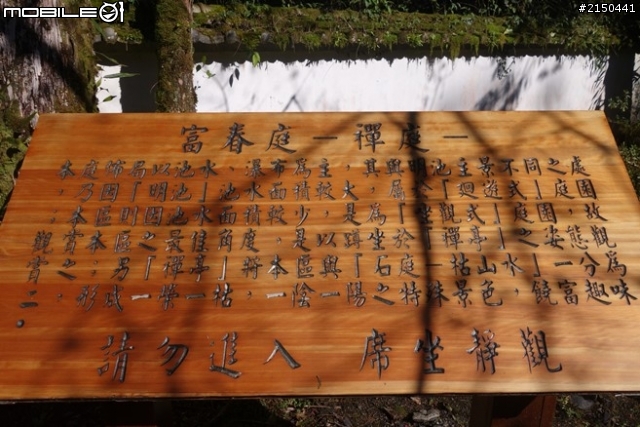 MOBILE01
#2150441
富春庭－禪庭－
本庭飾局以池水、瀑布為主，其與明池主景不同之處
，乃因「明池」池水面積較大，屬於「迴遊式」庭園
，本區則因池水面積較少，是為「坐觀式」庭園，故
觀賞本區之最佳角度，是以蹲坐於「禪亭」之姿態觀
賞之，另「禪亭」將本區與「石庭－枯山水」一分為
二，形成一榮一枯，一陰一陽之特殊景色，饒富趣味
。
請勿進入 席坐靜觀